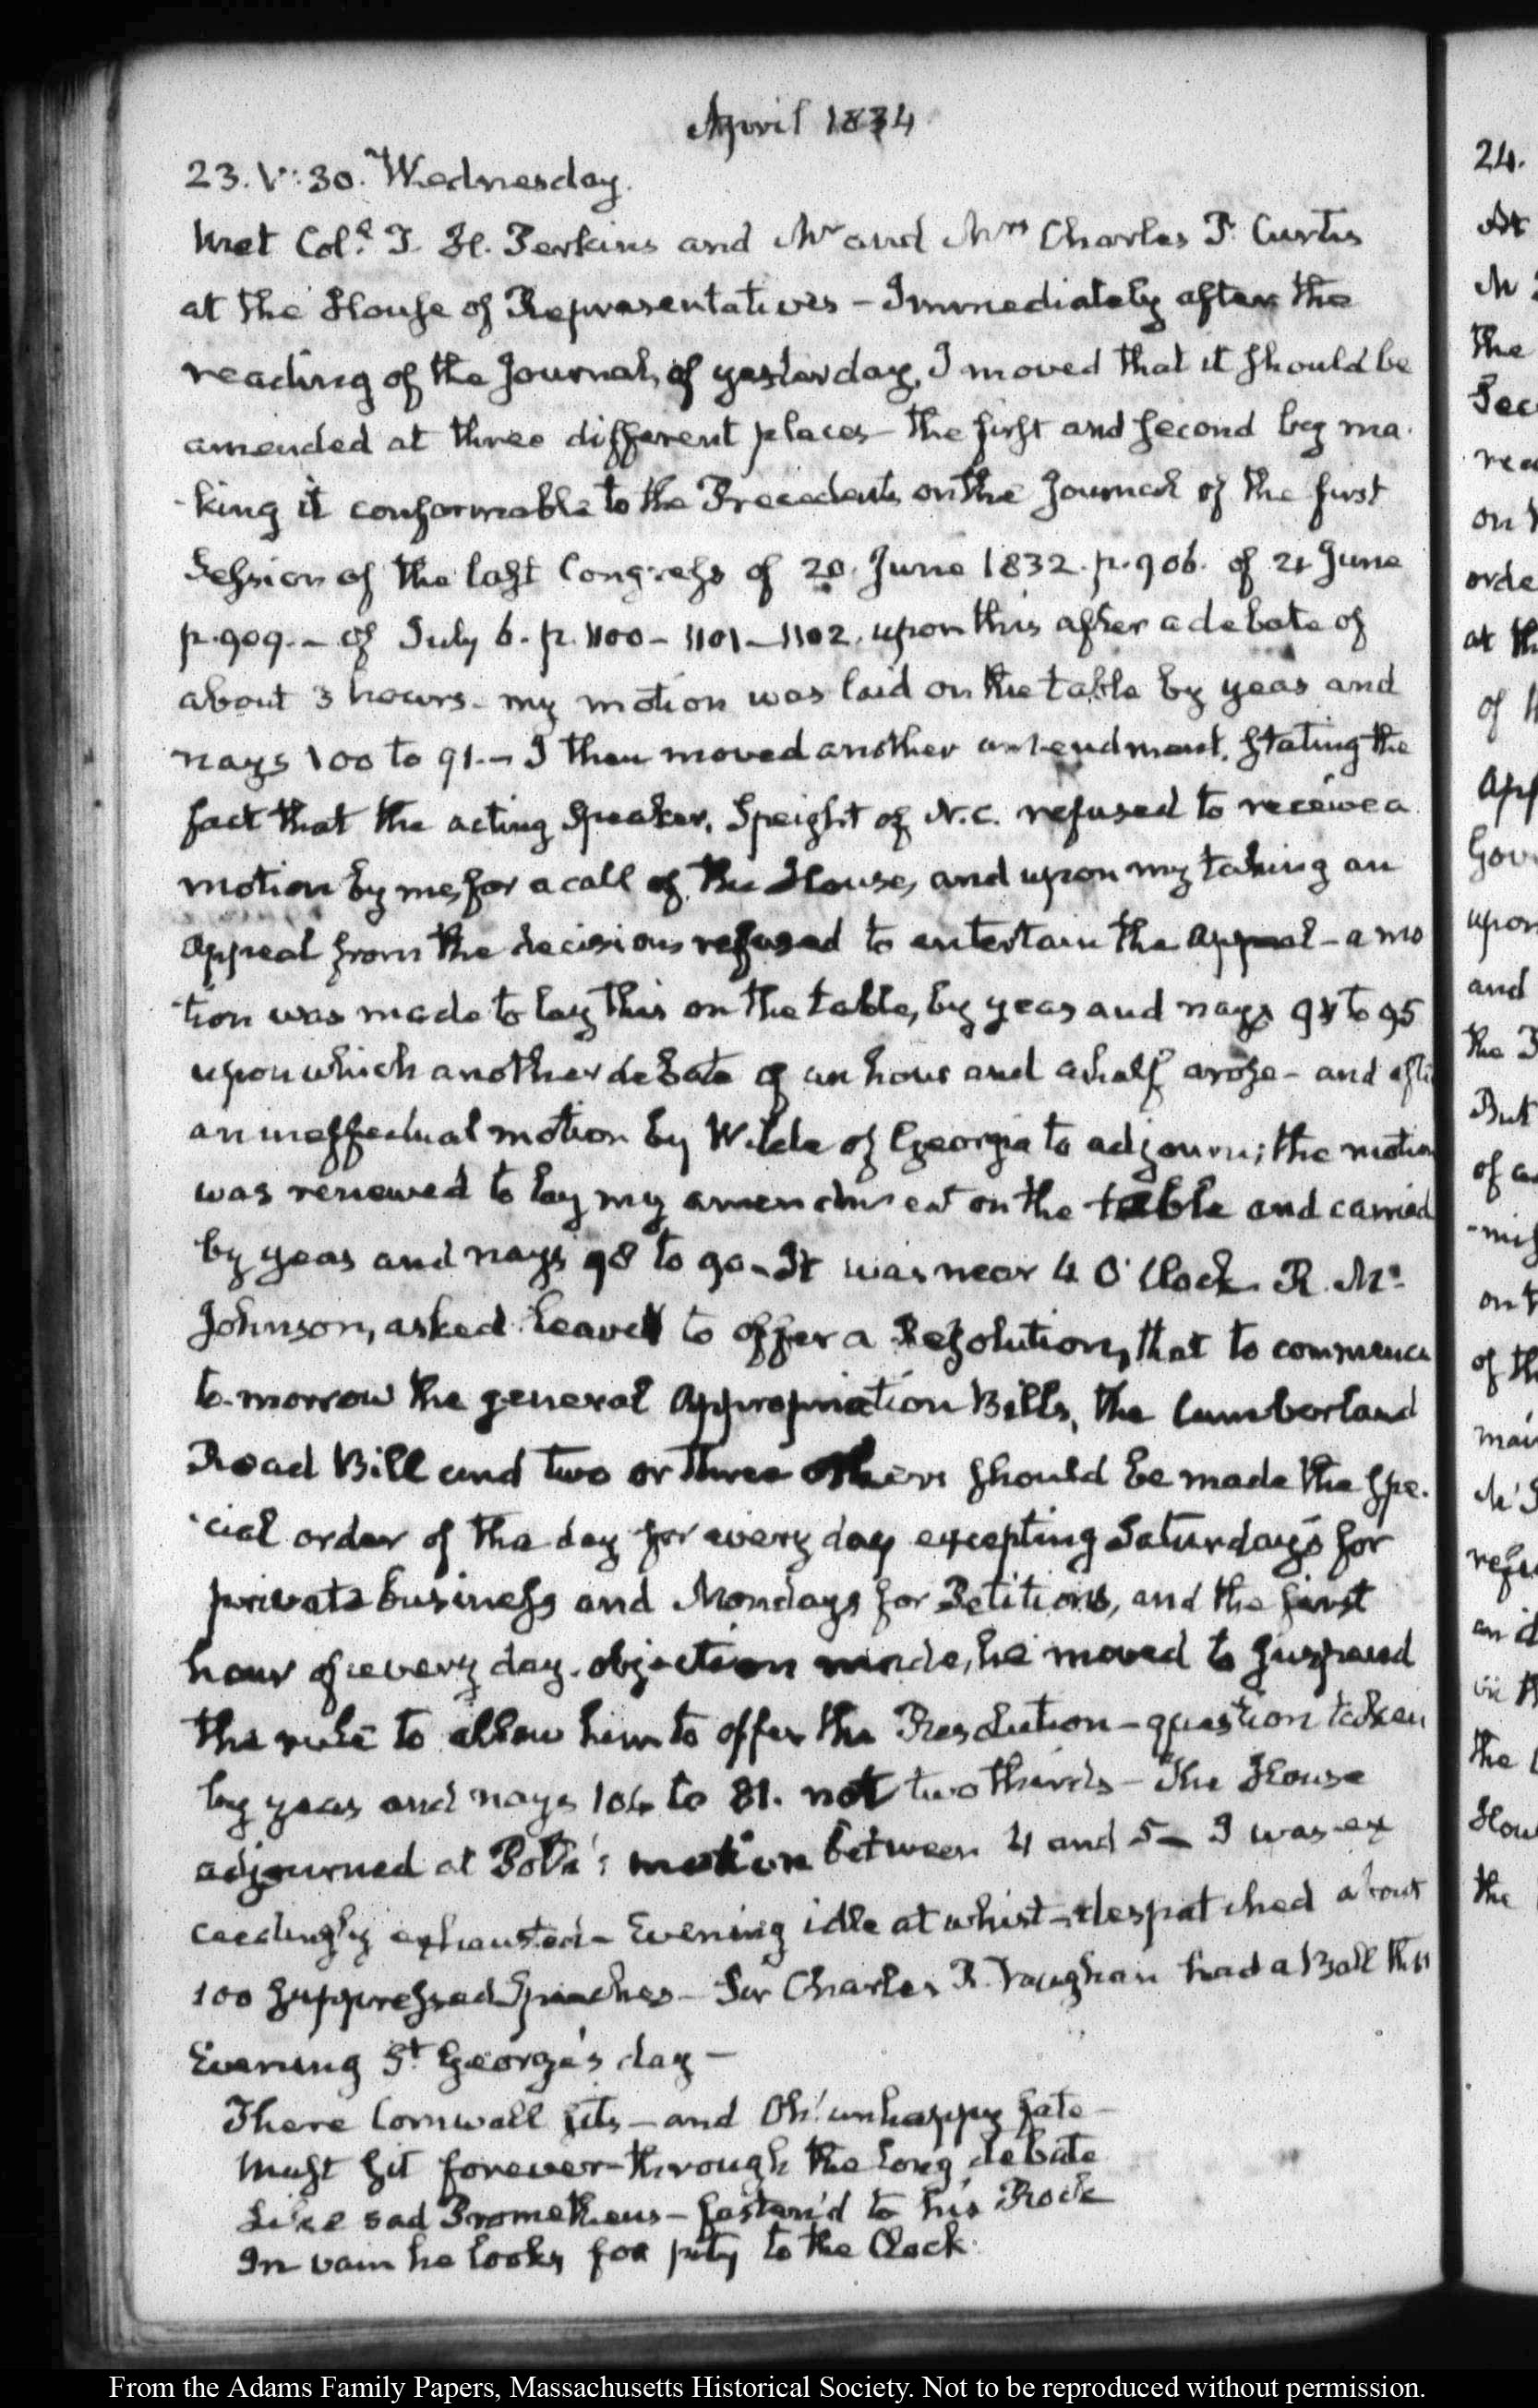 April 1834
23. V: 30. Wednesday.
Met Col.l T. H. Perkins and Mr and Mrs Charles P. Curtis
at the House of Representatives – Immediately after the
reading of the Journal, of yesterday, I moved that it should be
amended at three different places – the first and second by ma-
-king it conformable to the Precedents on the Journal of the first
Session of the last Congress of 20. June 1832. p. 906. of 21 June
p. 909. – of July 6. p. 1100 – 1101 – 1102. upon this after a debate of
about 3 hours – my motion was laid on the table by yeas and
nays 100 to 91. – I then moved another amendment, stating the
fact that the acting Speaker, Speight of N.C. refused to receive a
motion by me, for a call of the House, and upon my taking an
appeal from the decision refused to entertain the appeal – a mo
-tion was made to lay this on the table, by yeas and nays to 95
upon which another debate of an hour and a half arose – and after
an ineffectual motion by Wilde of Georgia to adjourn; the motion
was renewed to lay my amendment on the table and carried
by yeas and nays 98 to 90 – It was near 4 O'Clock. R. M.
Johnson, asked leave to offer a Resolution, that to commence
to-morrow the general Appropriation Bills, the Cumberland
Road Bill and two or three others should be made the spe-
-cial order of the day for every day excepting Saturdays for
private business and Mondays for Petitions, and the first
hour of every day. objection made, he moved to suspend
the rule to allow him to offer the Resolution – question taken
by yeas and nays 104 to 81. not two thirds – The House
adjourned at Polk's motion between 4 and 5 – I was ex
ceedingly exhausted – Evening idle at whist – despatched about
100 suppressed Speeches – Sir Charles R. Vaughan had a Ball this
Evening St George's day –
There Cornwall sits – and Oh! unhappy fate –
Must sit forever – through the long debate
Like sad Prometheus – fasten'd to his Rock
In vain he looks for pity to the Clock.
24.
At
M
the
rea
on
orde
at th
of
App
Gov
upon
and
the
But
of
on
of th
refu
in th
the
Hou
the
From the Adams Family Papers, Massachusetts Historical Society. Not to be reproduced without permission.